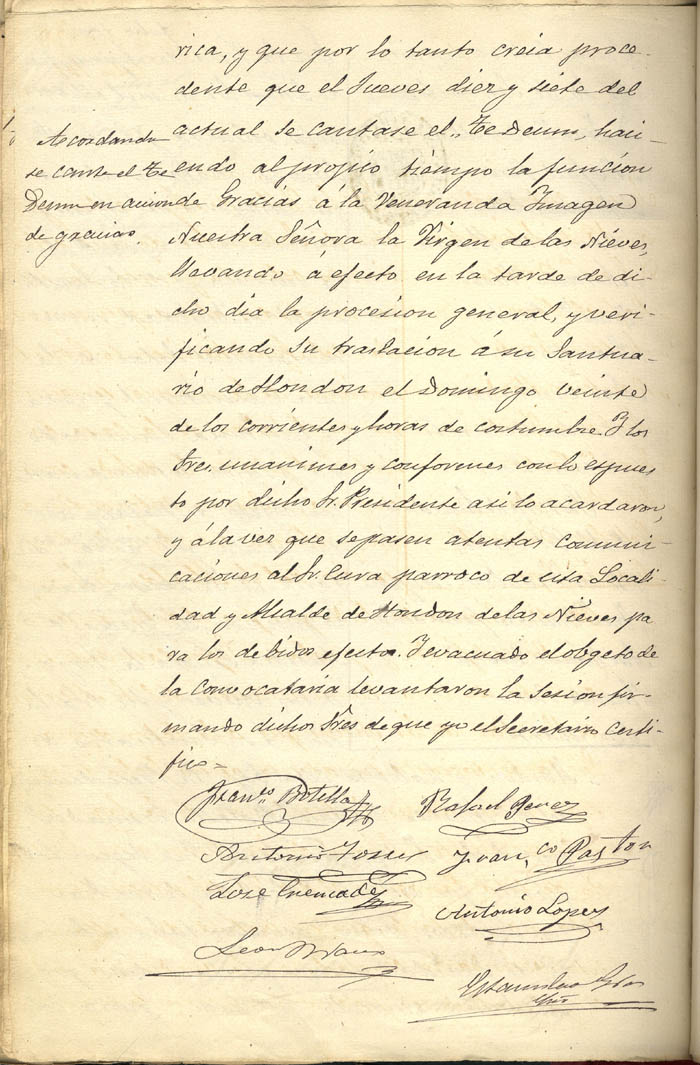 rica, y que por lo tanto creia proce-
dente que el Jueves diez y siete del
actual se cantase el, Te Deum, haci-
endo al propio tiempo la función
de Gracias á la Veneranda Imagen
Nuestra Señora la Virgen de las Nieves,
llevando á efecto en la tarde de di-
cho dia la procesion general, y veri-
ficando su traslacion á su Santua-
rio de Hondon el Domingo veinte
de los corrientes y horas de costumbre. Y los
Sres. unanimes y conformes con lo espues
to por dicho Sr. Presidente asi lo acordaron,
y á la vez que se pasen atentas comuni-
caciones al Sr. Cura parroco de esta Locali
dad y Alcalde de Hondon de las Nieves pa
ra los debidos efectos. Y evacuado el obgeto de
la Convocatoria levantaron la Sesion fir-
mando dichos Sres de que yo el Secretario certi-
fico =
Acordando
se cante el Te
Deum en accion
de gracias.
Fran.co Botella
Rafael Perez
Antonio
Fran.co Pastor
Jose Cremades
Antonio Lopez
Leon
Estanislao